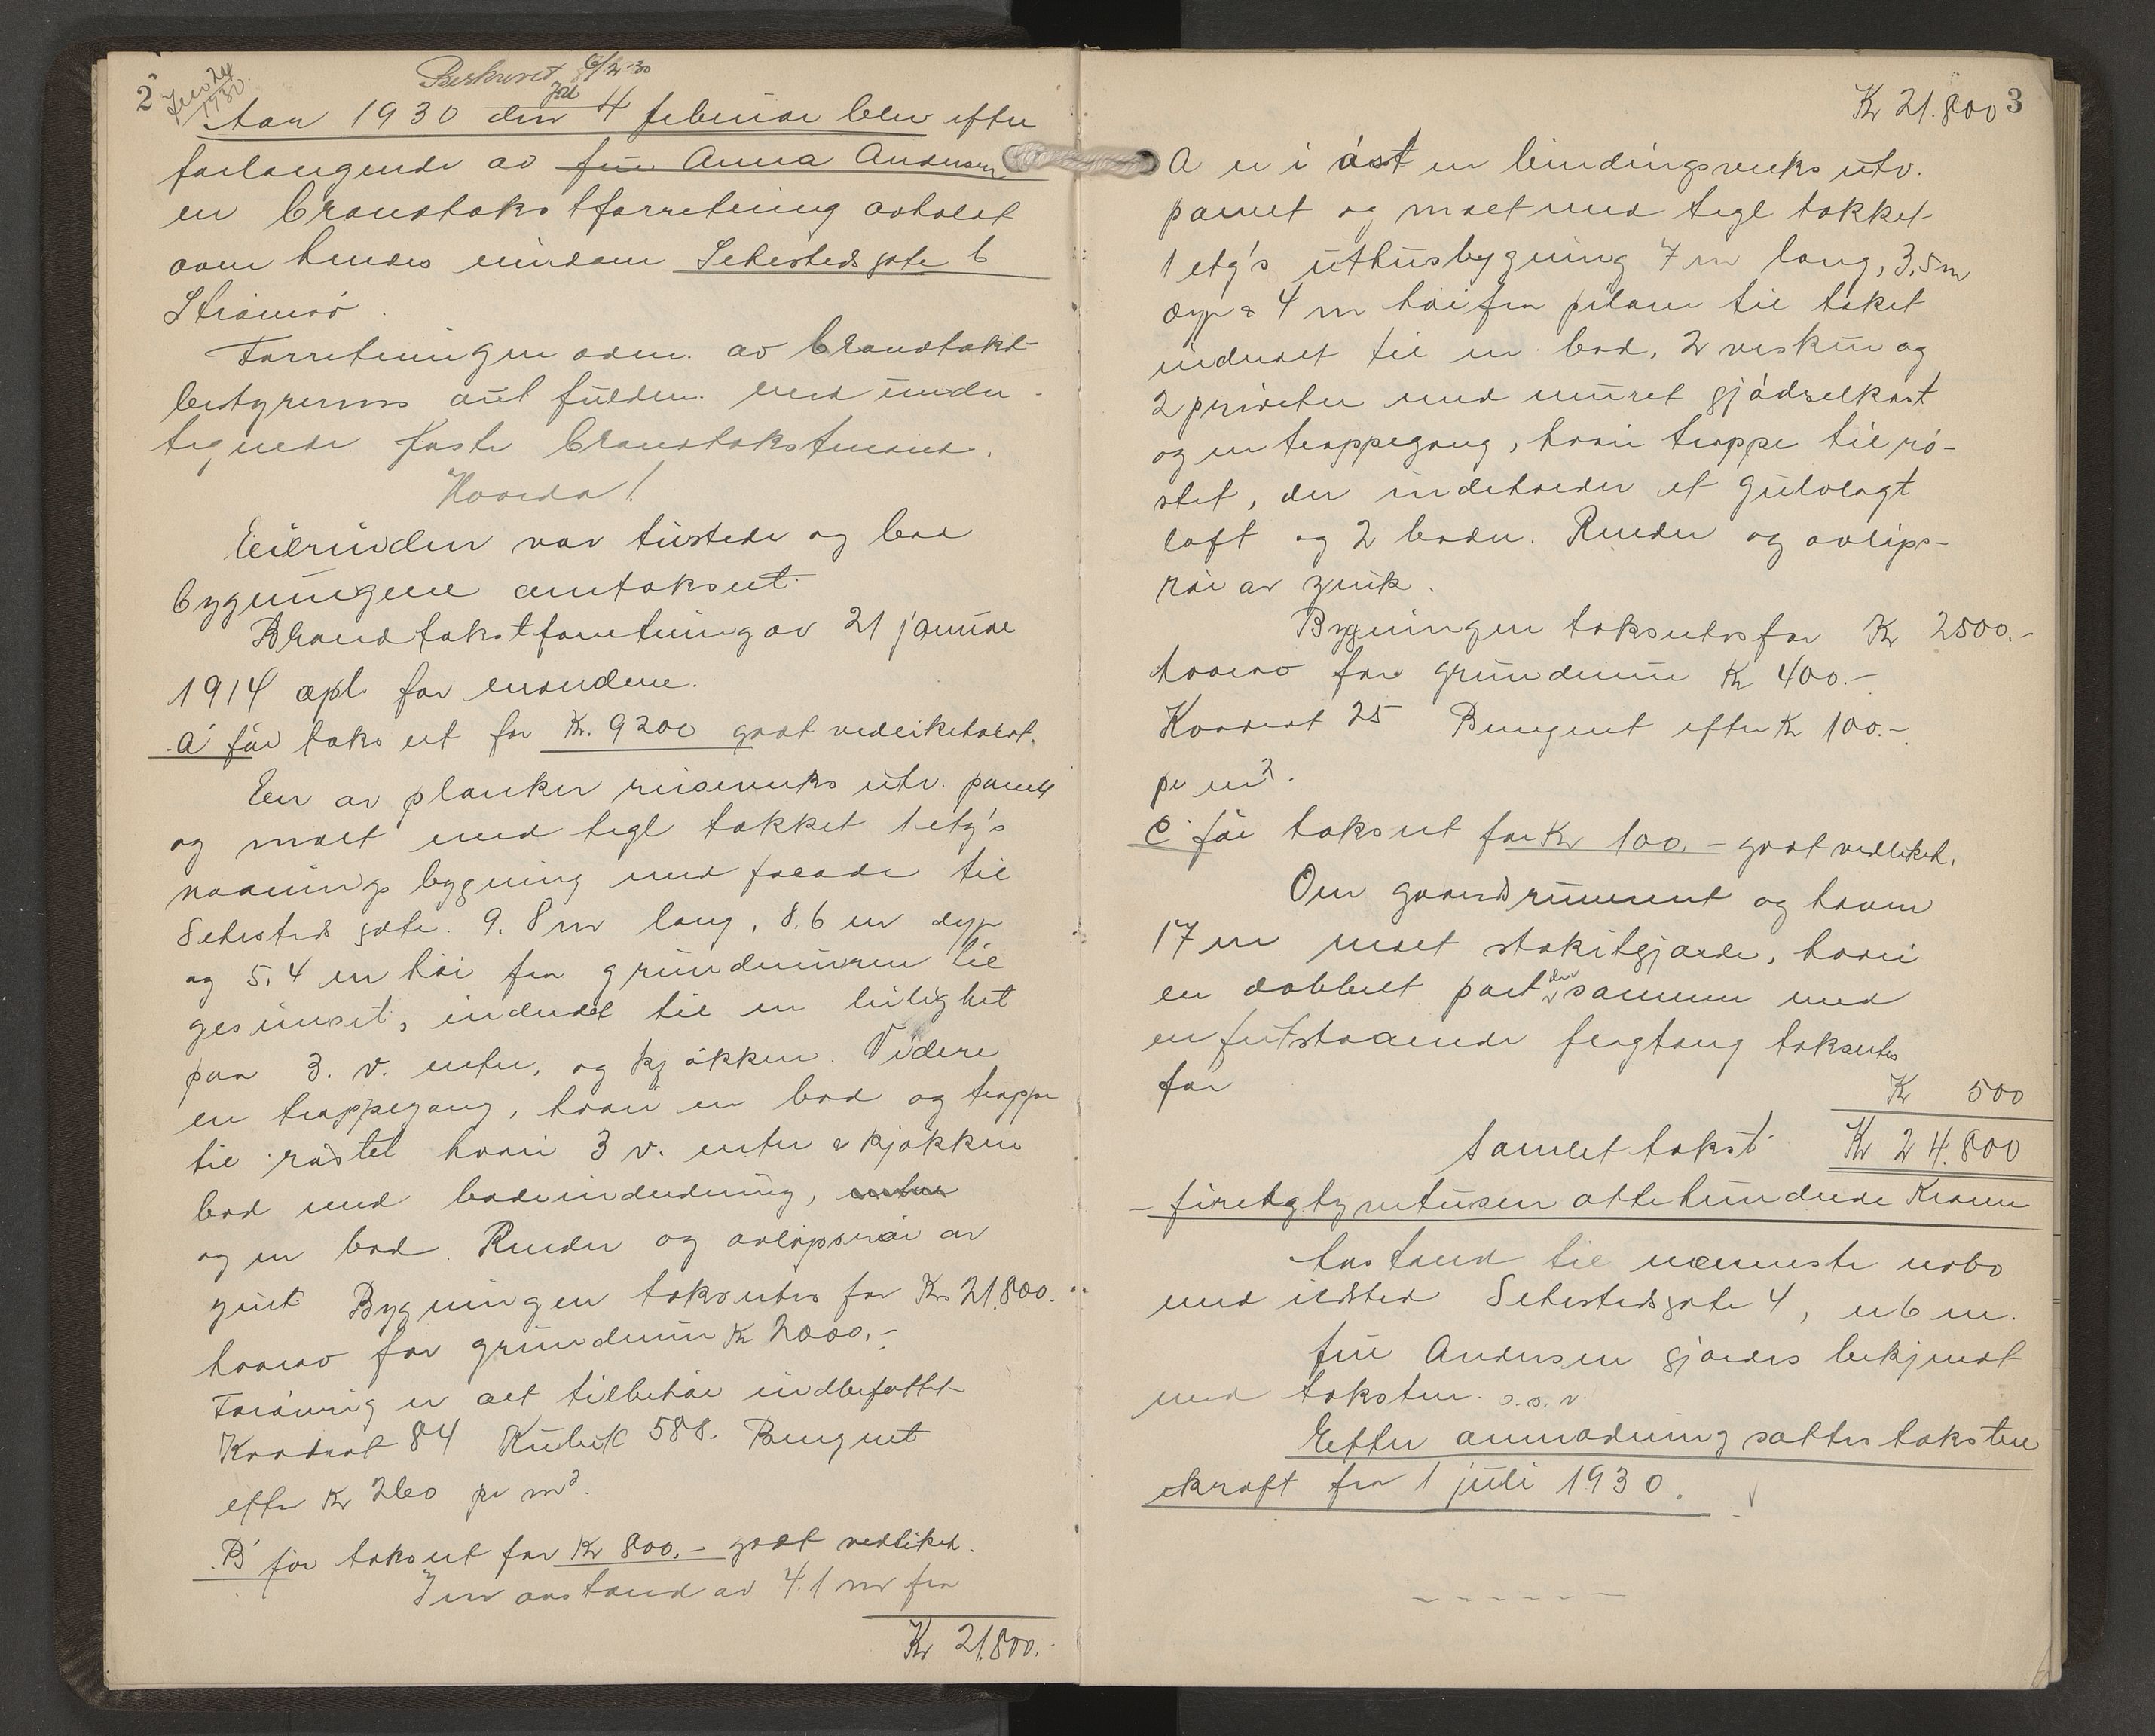 2
Jnr 24
1930.
Beskrevet 6/2-30
Aar 1930 den 4 februar blev efter
forlangende av fru Anna Andersen
en brandtakstforretning avholdt
over hendes eiendom Sehestedsgate 6
Strømsø.
Forretningen adm. av brandtakst-
bestyrerens aut fuldm. med under-
tegnede faste brandtakstmænd.
Hvorda!
Eierinden var tilstede og bad
bygningene omtaksert.
Brandtakstforretning av 21 januar
1914 opl. for mændene.
A før taksert for Kr. 9200 godt vedlikeholdt.
En av planker reisverks utv. panelt
og malt med tegl tækket 1 etg's
vaanings bygning med facade til
Sehesteds gate. 9.8 m lang, 8.6 m dyp
og 5,4 m høi fra grundmuren til
gesimset, inderedet til en leilighet
paa 3. v. entre, og kjøkken. Videre
en trappegang, hvori en bod og trappe
til røstet hvori 3 v. entre & kjøkken
bad med badeindredning, entre
og en bod. Render og avløpsrør av
zink. Bygningen takseres for Kr. 21.800.-
hvorav for grundmur Kr 2000,-
Forøvrig er alt tilbehør indbefattet
Kvadrat 84 Kubik 588. Beregnet
efter Kr 260 pr m².
B før taksert for Kr 800.- godt vedliked.
I en avstand av 4.1 m fra
Kr 21.800.-
Kr 21.800 3
A er i øst en bindingsverks utv.
panelt og malt med tegl tækket
1 etg's uthusbygning 7 m lang, 3,5 m
dyp & 4 m høi fra pilarer til taket
inderedet til en bod, 2 vedskur og
2 priveter med muret gjødselkast
og en trappegang, hvori trappe til rø-
stet, der indeholder et gulvlagt
loft og 2 boder. Render og avløps-
rør av zink.
Bygningen takseres for Kr 2500.-
hvorav for grundmur Kr 400.-
Kvadrat 25 Beregnet efter Kr 100.-
pr m².
C før taksert for Kr 100.- godt vedliked.
Om gaardsrummet og haven
17 m malt stakitgjærde, hvori
en dobbelt port der sammen med
en fritstaaende flagstang takseres
for
Kr 500
Samlet takst Kr 24.800
- firetogtyvetusen ottehundrede Kroner
Avstand til nærmeste nabo
med ildsted Sehestedsgate 4, er 6 m.
Fru Andersen gjordes bekjendt
med taksten. s.s.v.
Efter anmodning sættes taksten
ikraft fra 1 juli 1930.